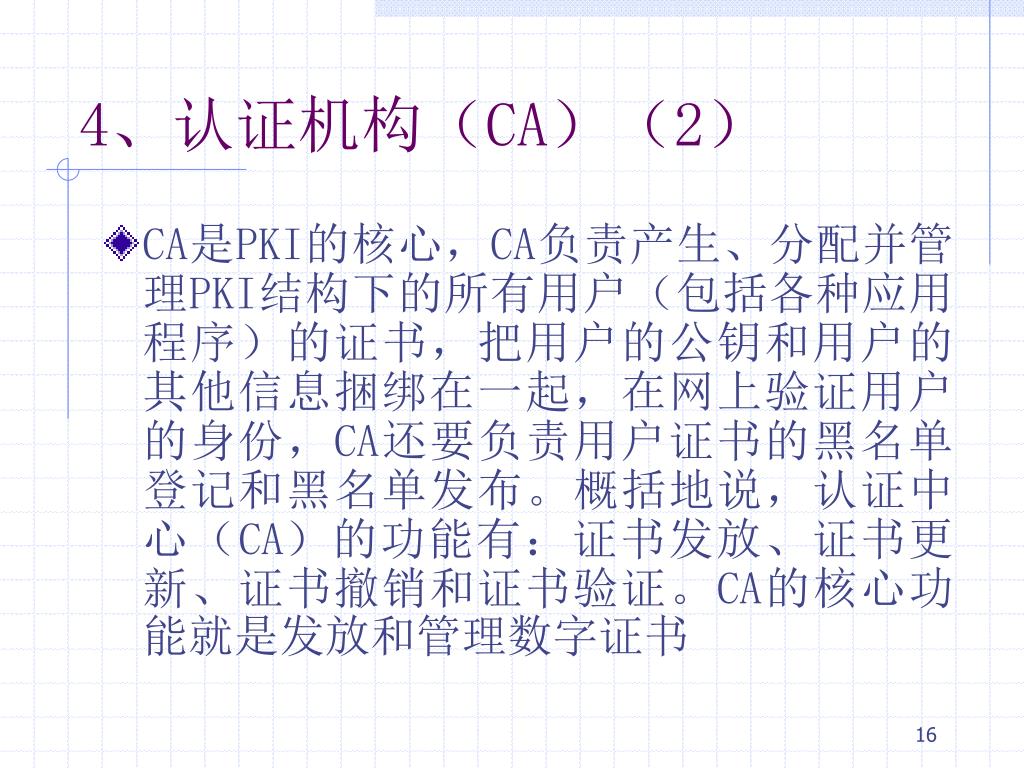 4、认证机构（CA）（2）
CA是PKI的核心，CA负责产生、分配并管
理PKI结构下的所有用户（包括各种应用
程序）的证书，把用户的公钥和用户的
其他信息捆绑在一起，在网上验证用户
的身份，CA还要负责用户证书的黑名单
登记和黑名单发布。概括地说，认证中
心（CA）的功能有：证书发放、证书更
新、证书撤销和证书验证。CA的核心功
能就是发放和管理数字证书
16